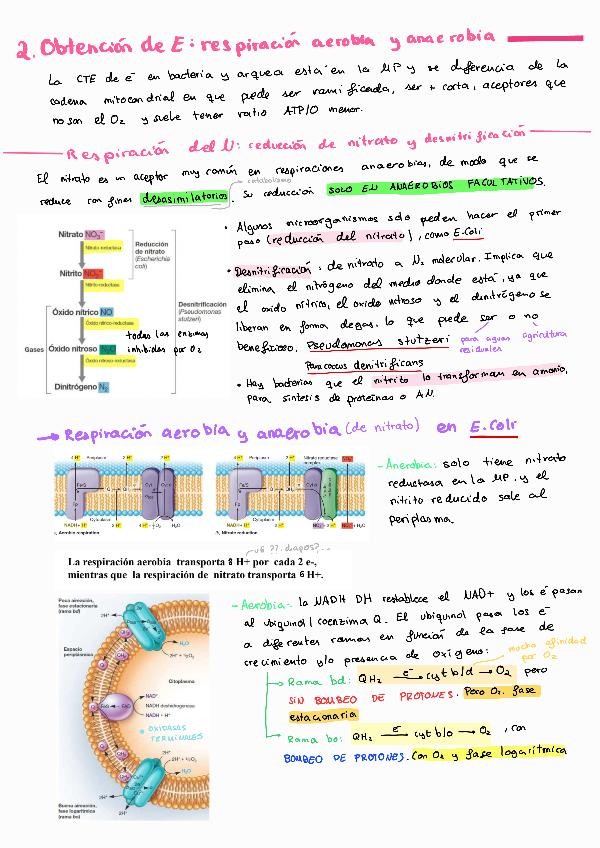 2. Obtención de E: respiración aerobia y anaerobia
La CTE de e- en bacteria y arquea está en la MP y se diferencia de la
cadena mitocondrial en que puede ser ramificada, ser + corta, aceptores que
no son el O2 y suele tener ratio ATP/O menor.
Respiración del N: reducción de nitrato y desnitrificación
El nitrato es un aceptor muy común en respiraciones anaerobias, de modo que se
catabolismo
reduce con fines desasimilatorios. Su reducción SOLO EN ANAEROBIOS FACULTATIVOS.
Nitrato NO3-
Nitrato reductasa
Reducción
de nitrato
(Escherichia
coli)
Nitrito NO2-
Nitrito reductasa
Óxido nítrico NO
Óxido nítrico reductasa
Desnitrificación
(Pseudomonas
stutzeri)
Gases
Óxido nitroso N2O
Óxido nitroso reductasa
Dinitrógeno N2
todas las enzimas
inhibidas por O2
• Algunos microorganismos solo pueden hacer el primer
paso (reducción del nitrato), como E.Coli
• Desnitrificación: de nitrato a N2 molecular. Implica que
elimina el nitrógeno del medio donde está, ya que
el oxido nítrico, el oxido nitroso y el dinitrógeno se
liberan en forma de gas. lo que puede ser o no
beneficioso. Pseudomonas stutzeri
para aguas
residuales
agricultura
Paracoccus denitrificans
• Hay bacterias que el nitrito lo transforman en amonio,
para síntesis de proteínas o AN.
→ Respiración aerobia y anaerobia (de nitrato) en E.Coli
4 H+ Periplasm 2 H+ 2 H+
Fe/S
Fp
Q
Cytoplasm
NADH + H+
4 H+ + O2
H2O
a. Aerobic respiration
4 H+ Periplasm 2 H+
Nitrate reductase
complex
Fe/S
Fp
Q
Cytoplasm
NADH + H+
2 H+
NO3- NO2- + H2O
b. Nitrate reduction
- Anerobia: solo tiene nitrato
reductasa en la MP, y el
nitrito reducido sale al
periplasma.
→ 6 ??. diapos?...
La respiración aerobia transporta 8 H+ por cada 2 e-,
mientras que la respiración de nitrato transporta 6 H+.
Poca aireación,
fase estacionaria
(rama bd)
2H+
H2O
2H+ + ½O2
Espacio
periplásmico
Citoplasma
NAD+
NADH deshidrogenasa
NADH + H+
FeS
FAD
• OXIDASAS
TERMINALES
2H+
2H+ + ½O2
H2O
Buena aireación,
fase logarítmica
(rama bo)
- Aerobia: la NADH DH restablece el NAD+ y los e- pasan
al ubiquinol/coenzima Q. El ubiquinol pasa los e-
a diferentes ramas en función de la fase de
crecimiento y/o presencia de oxígeno:
mucha afinidad
por O2
Rama bd: QH2 e-→ cyt b/d → O2 pero
SIN BOMBEO DE PROTONES. Poco O2. fase
estacionaria
Rama bo: QH2 e-→ cyt b/o → O2, con
BOMBEO DE PROTONES. Con O2 y fase logarítmica